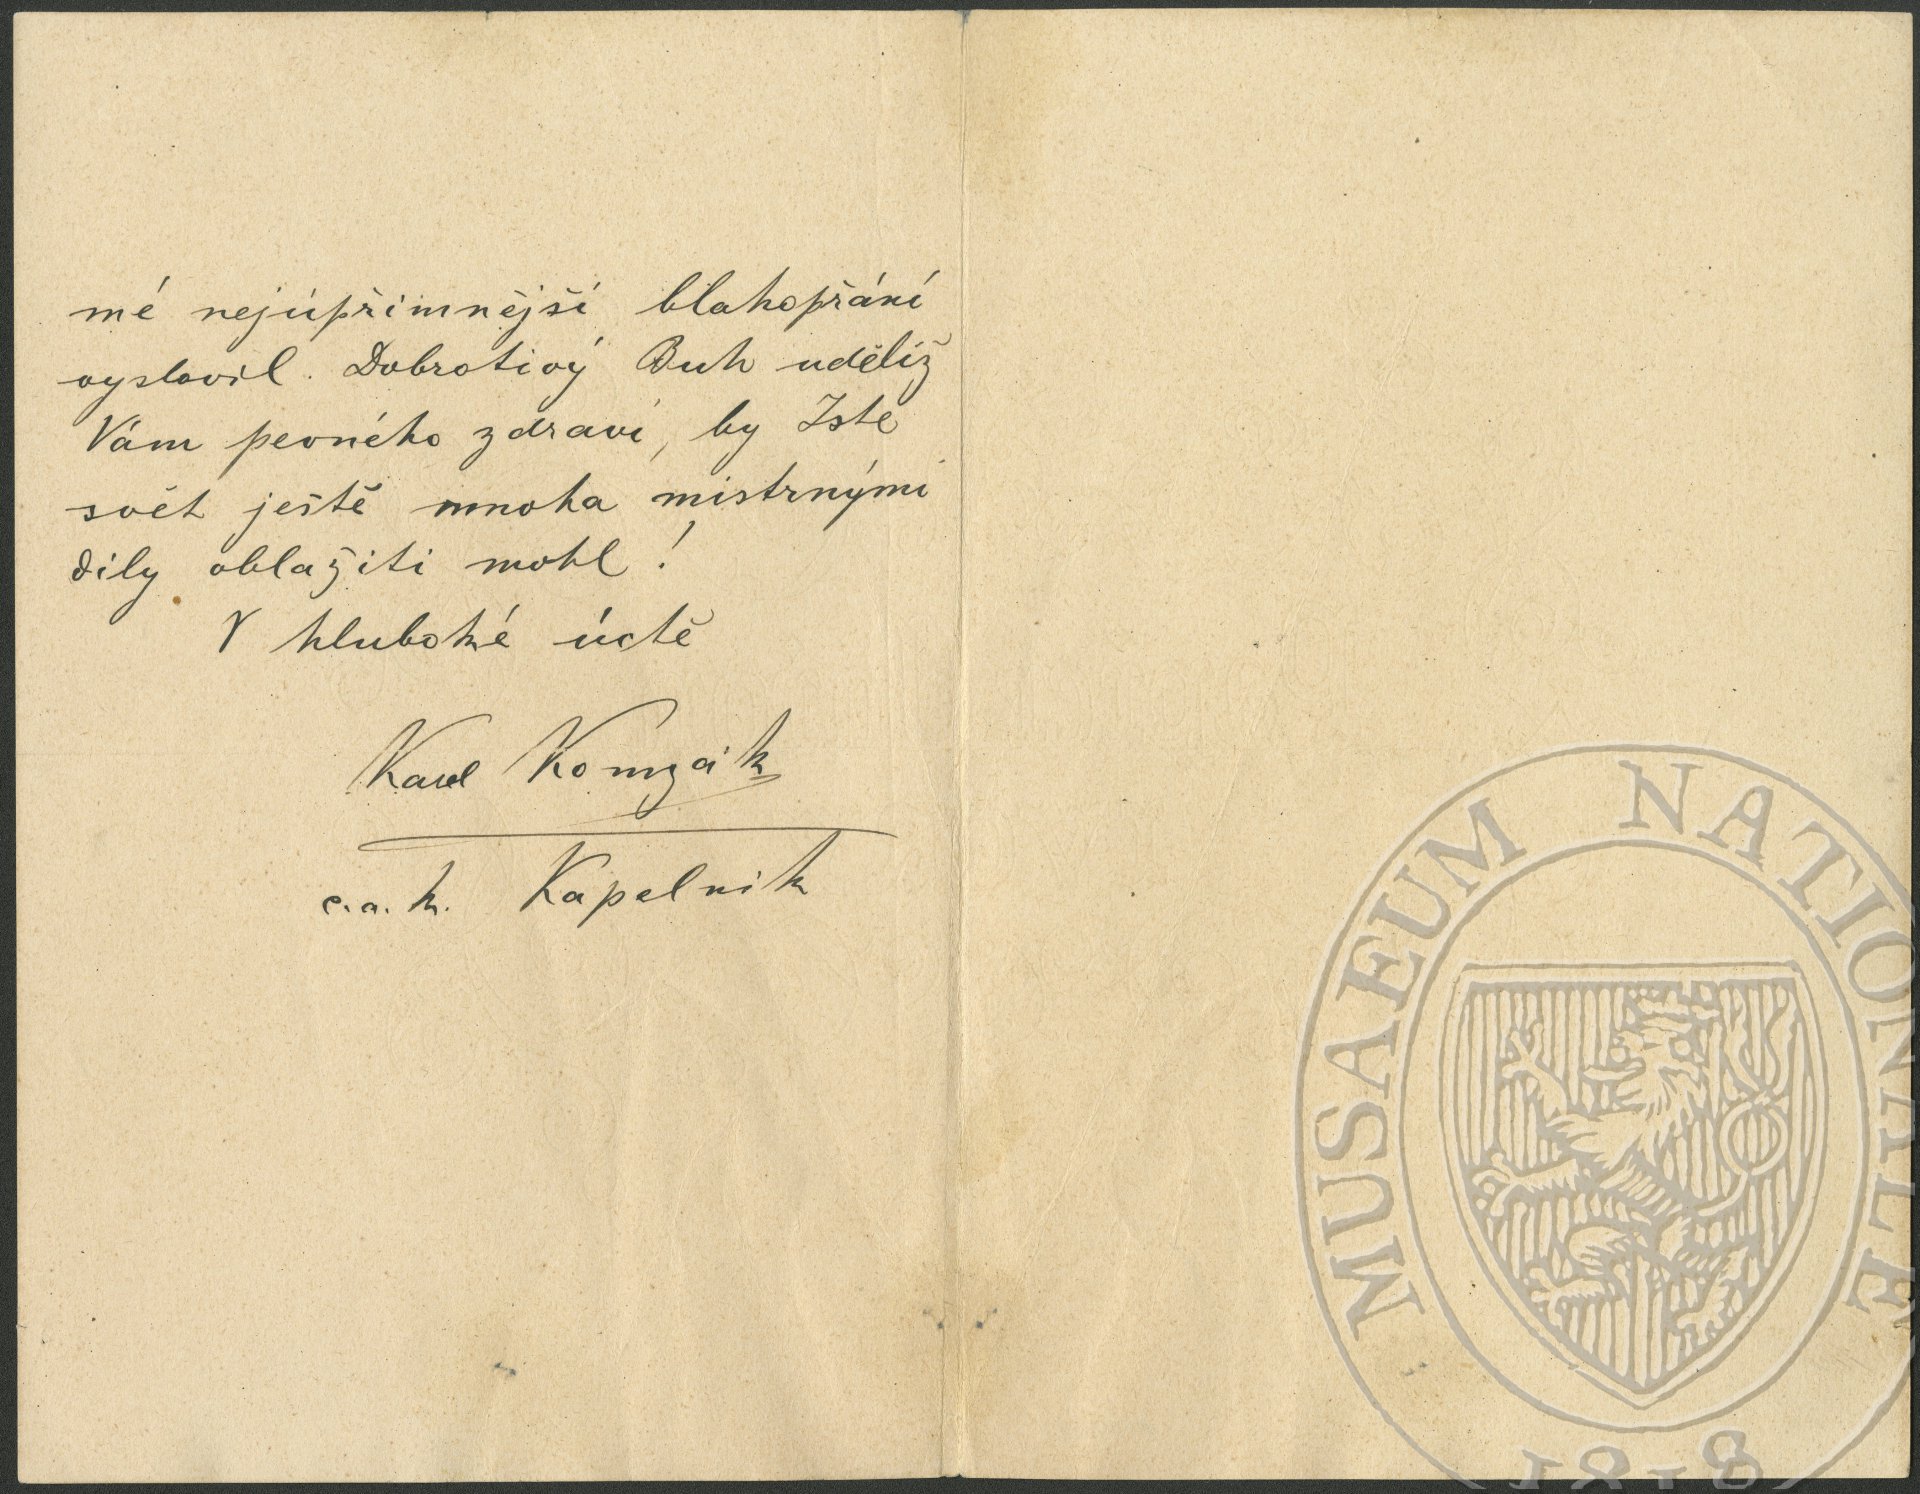 mé nejúpřimnější blahopřání
vyslovil. Dobrotivý Buh uděliž
Vám pevného zdraví, by Jste
svět ještě mnoha mistrnými
díly oblažiti mohl!
V hluboké úctě
Karel Komzák
c. a. k. Kapelnik
MUSAEUM NATIONALE
1818